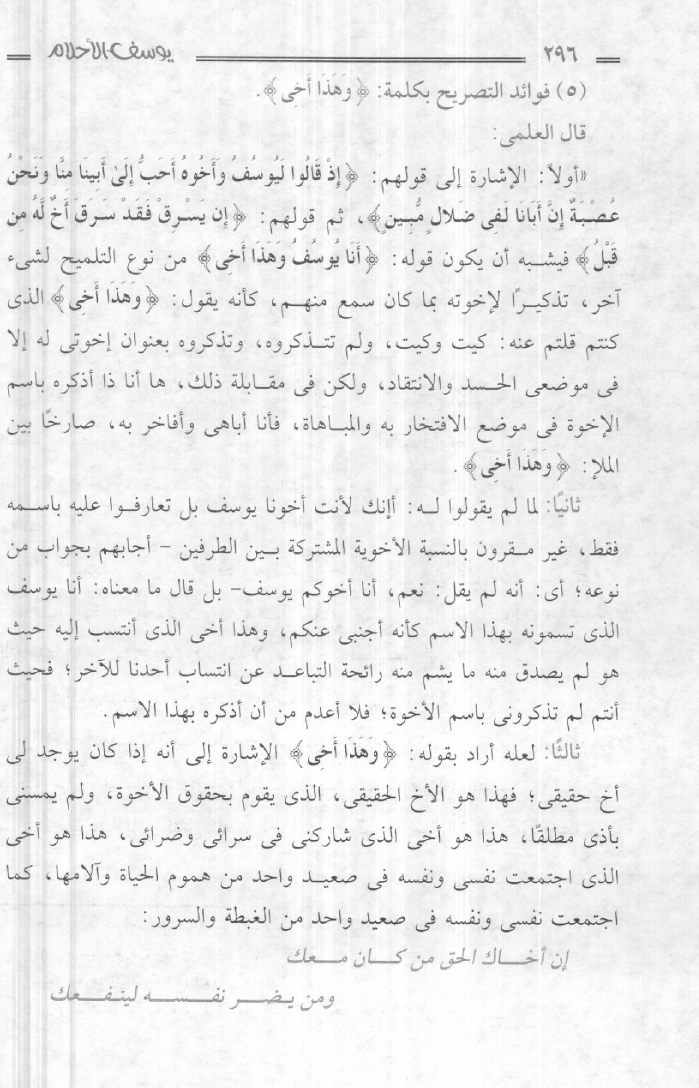 ٢٩٦ يوسف الأحلام
(٥) فوائد التصريح بكلمة: ﴿وَهَذَا أَخِى﴾.
قال العلمى:
«أولاً: الإشارة إلى قولهم: ﴿إِذْ قَالُوا لَيُوسُفُ وَأَخُوهُ أَحَبُّ إِلَىٰ أَبِينَا مِنَّا وَنَحْنُ
عُصْبَةٌ إِنَّ أَبَانَا لَفِى ضَلالٍ مُّبِينٍ﴾، ثم قولهم: ﴿إِن يَسْرِقْ فَقَدْ سَرَقَ أَخٌ لَّهُ مِن
قَبْلُ﴾ فيشبه أن يكون قوله: ﴿أَنَا يُوسُفُ وَهَذَا أَخِى﴾ من نوع التلميح لشىء
آخر، تذكيرًا لإخوته بما كان سمع منهم، كأنه يقول: ﴿وَهَذَا أَخِى﴾ الذى
كنتم قلتم عنه: كيت وكيت، ولم تتذكروه، وتذكروه بعنوان إخوتى له إلا
فى موضعى الحسد والانتقاد، ولكن فى مقابلة ذلك، ها أنا ذا أذكره باسم
الإخوة فى موضع الافتخار به والمباهاة، فأنا أباهى وأفاخر به، صارخًا بين
الملإ: ﴿وَهَذَا أَخِى﴾.
ثانيًا: لما لم يقولوا له: أإنك لأنت أخونا يوسف بل تعارفوا عليه باسمه
فقط، غير مقرون بالنسبة الأخوية المشتركة بين الطرفين – أجابهم بجواب من
نوعه؛ أى: أنه لم يقل: نعم، أنا أخوكم يوسف– بل قال ما معناه: أنا يوسف
الذى تسمونه بهذا الاسم كأنه أجنبى عنكم، وهذا أخى الذى أنتسب إليه حيث
هو لم يصدق منه ما يشم منه رائحة التباعد عن انتساب أحدنا للآخر؛ فحيث
أنتم لم تذكرونى باسم الأخوة؛ فلا أعدم من أن أذكره بهذا الاسم.
ثالثًا: لعله أراد بقوله: ﴿وَهَذَا أَخِى﴾ الإشارة إلى أنه إذا كان يوجد لى
أخ حقيقى؛ فهذا هو الأخ الحقيقى، الذى يقوم بحقوق الأخوة، ولم يمسنى
بأذى مطلقًا، هذا هو أخى الذى شاركنى فى سرائى وضرائى، هذا هو أخى
الذى اجتمعت نفسى ونفسه فى صعيد واحد من هموم الحياة وآلامها، كما
اجتمعت نفسى ونفسه فى صعيد واحد من الغبطة والسرور:
إن أخاك الحق من كان معك
ومن يضر نفسه لينفعك